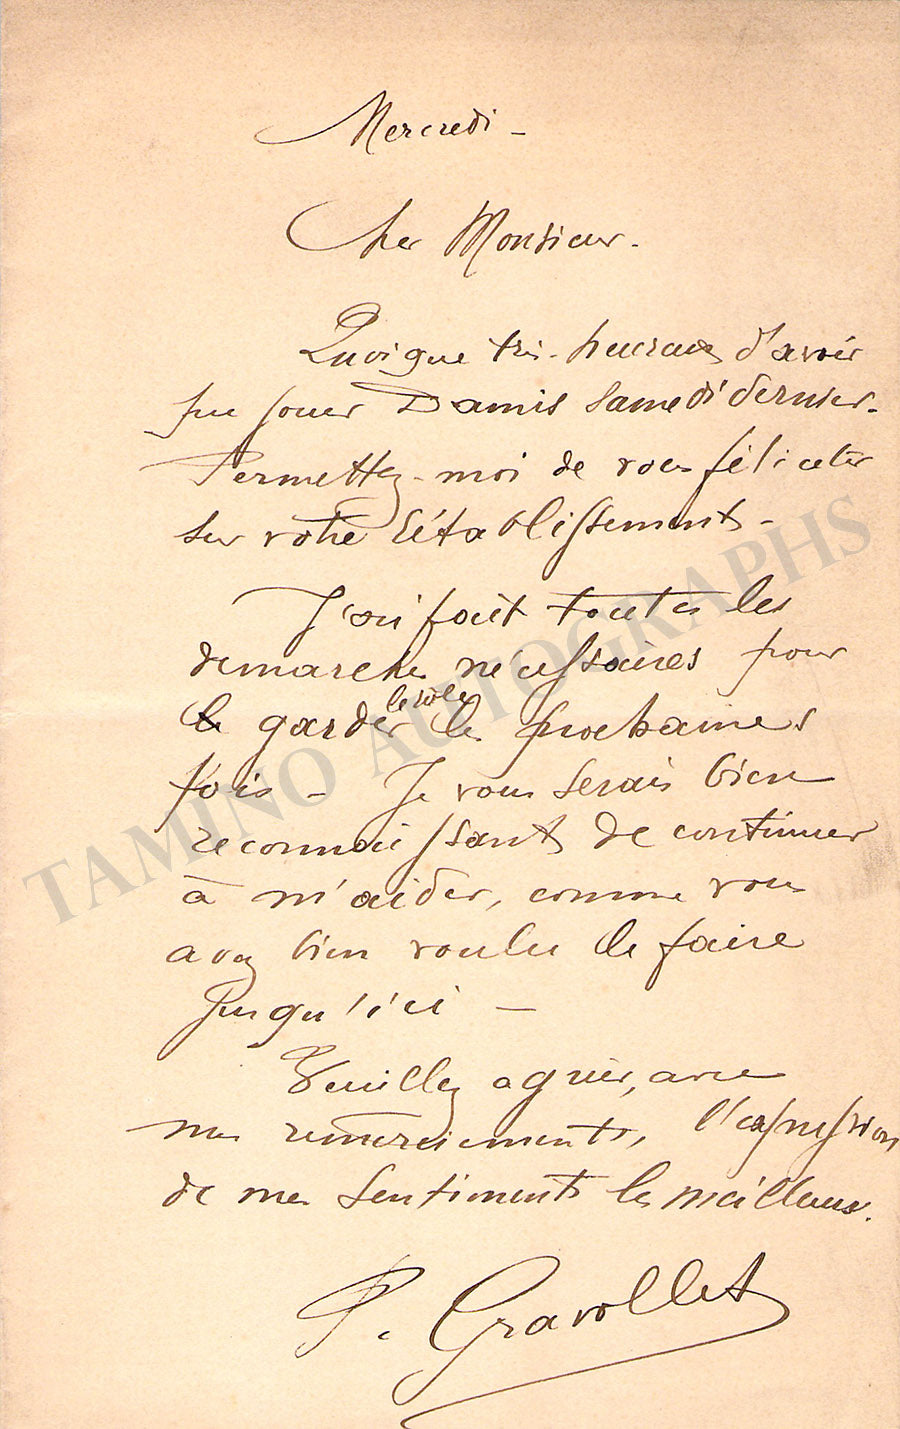 Mercredi -
Cher Monsieur.
Quoique très-heureux d'avoir
pu jouer Damis samedi dernier.
Permettez-moi de vous féliciter
sur votre rétablissement -
J'ai fait toutes les
demarches nécessaires pour
le garder le rôle les prochaines
fois - Je vous serais bien
reconnaissant de continuer
à m'aider, comme vous
avez bien voulu le faire
jusqu'ici -
Veuillez agréer, avec
mes remerciements, l'expression
de mes sentiments les meilleurs.
P. Gravollet
TAMINO AUTOGRAPHS